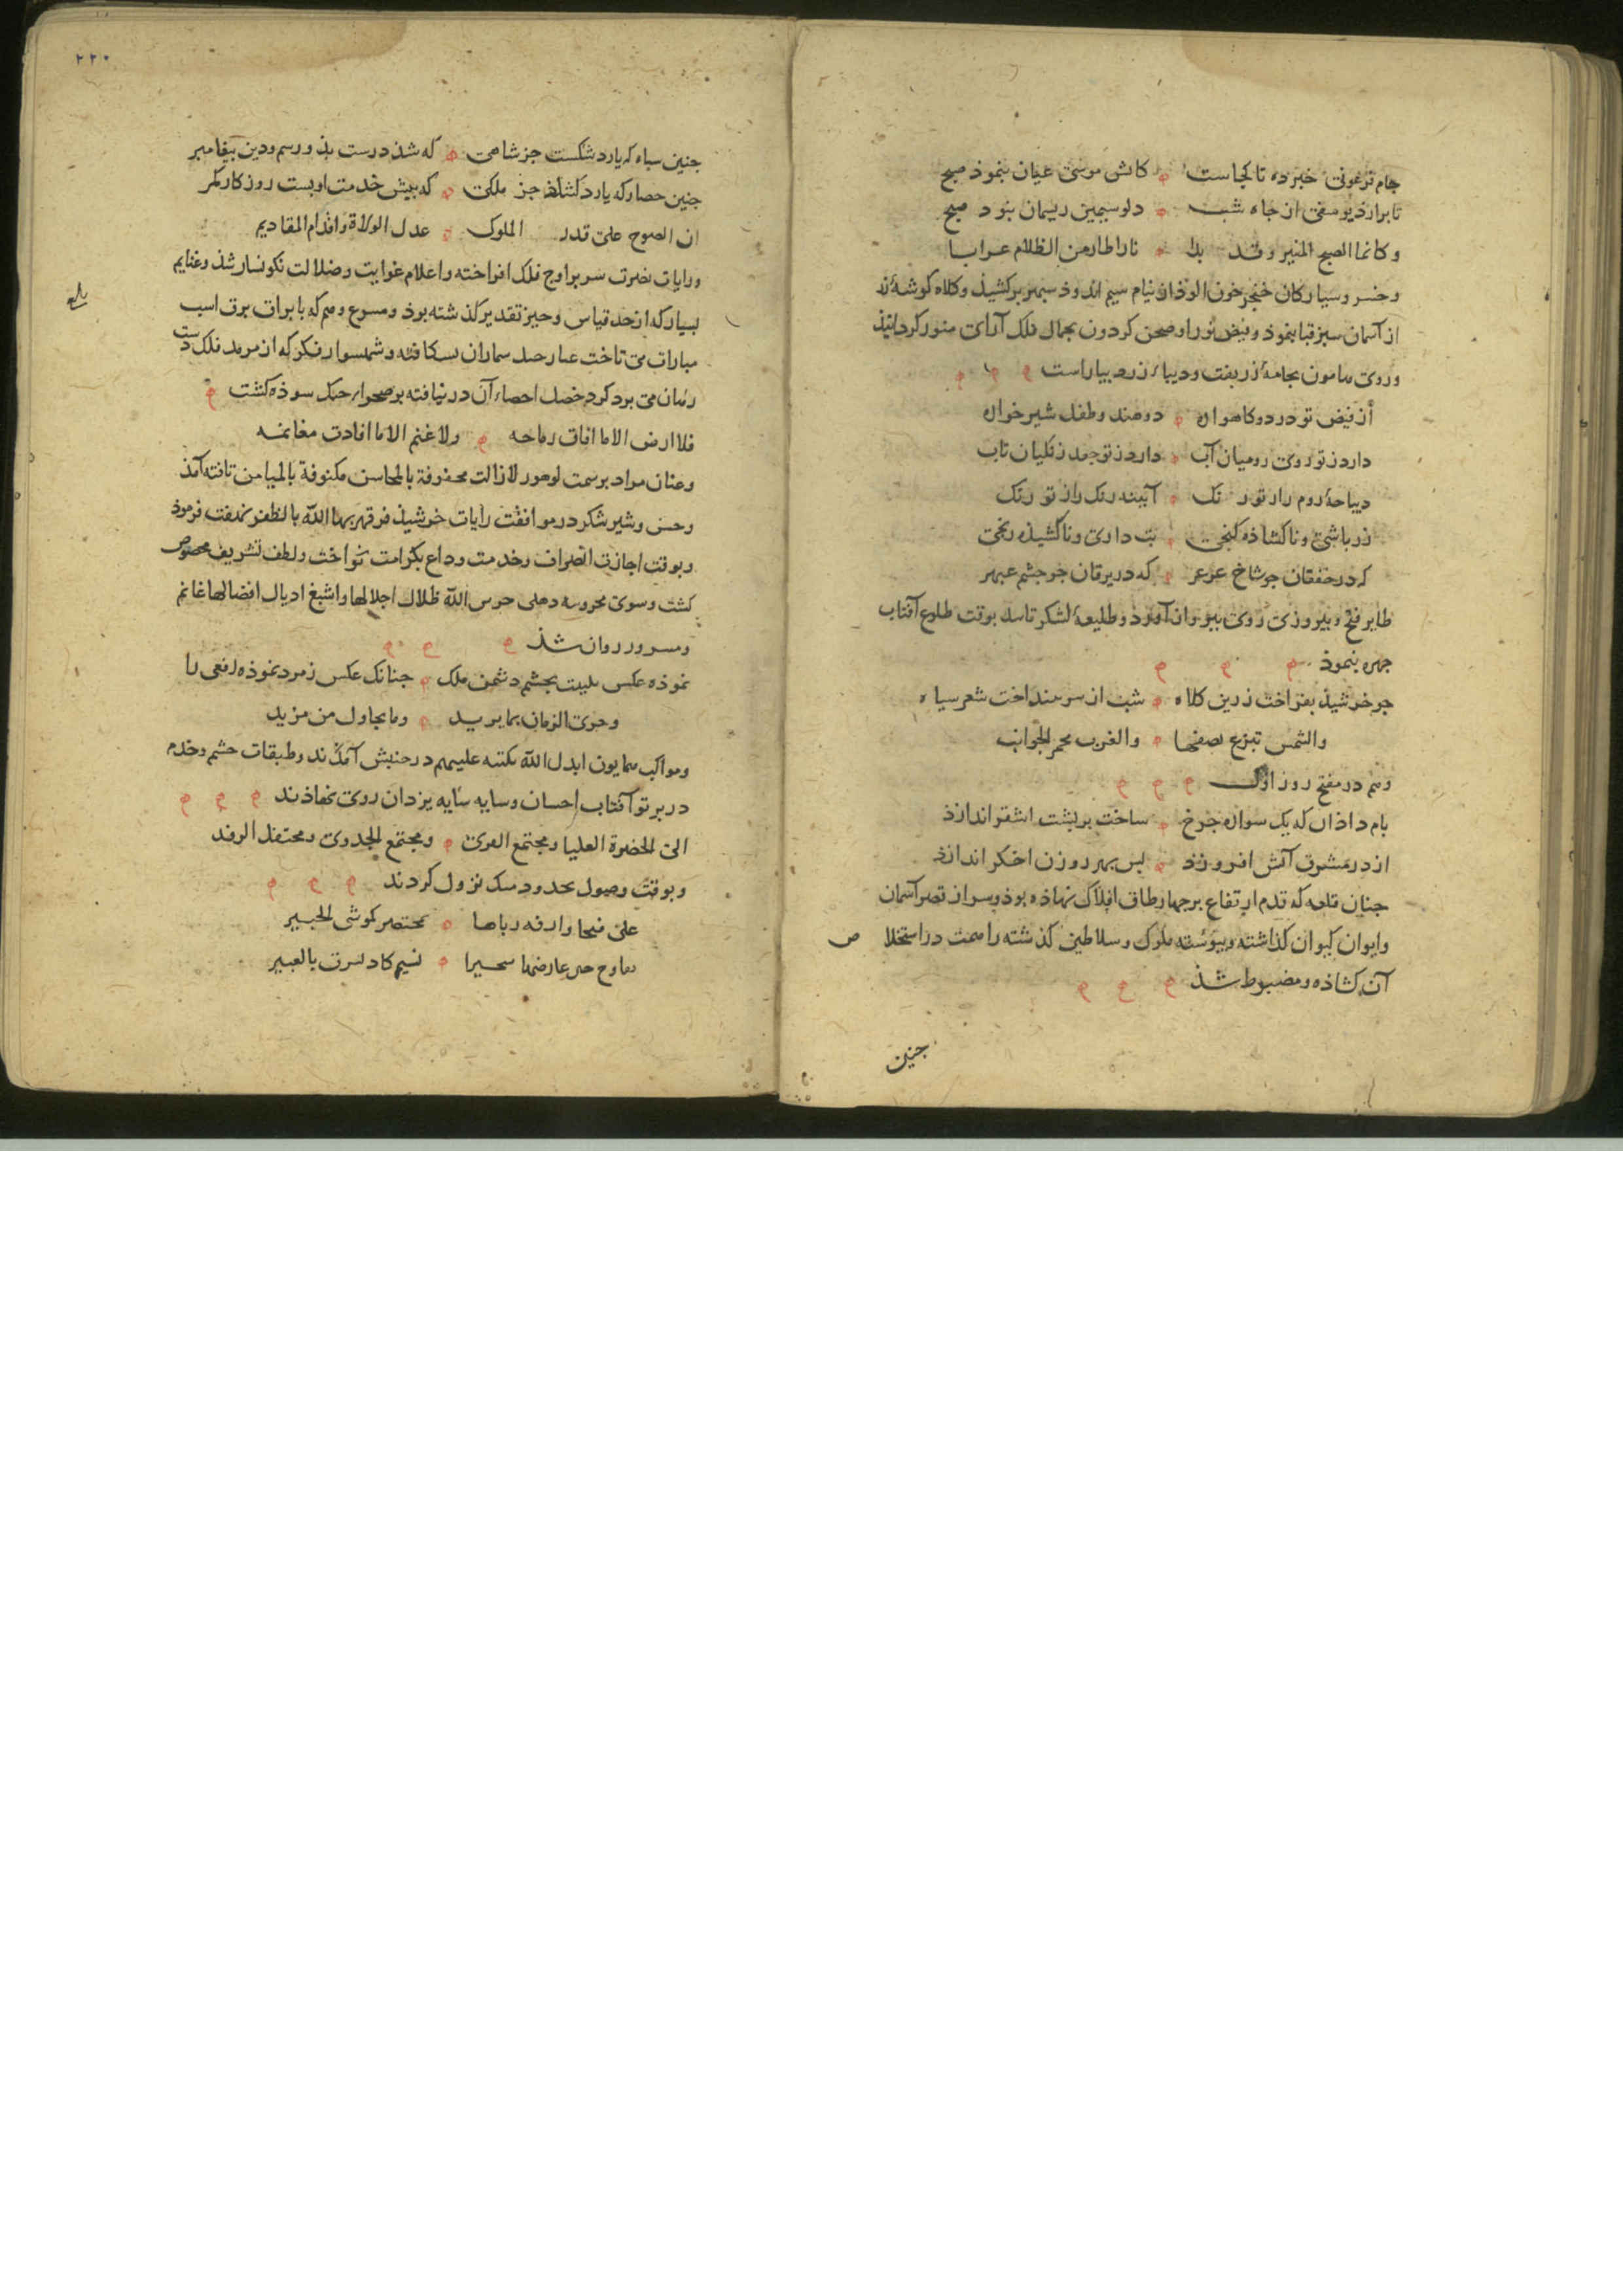 جام فرعونی خبرده تا کجاست کاتش موسی عیان بنموذ صبح
تا برارد یوسفی از جاه شب دلو سیمین ریسمان بنود صبح
و کانما الصبح المنیر وقد بدا نارا طار من الظلام غرابا
و خسرو سیارکان خنجر خون الوذ از نیام سیم اندوذ سبهر برکشیذ و کلاه کوشهٔ زر
از آسمان سبز قبا بنموذ و بیض نور او صحن کردون بجمال فلک آرای منور کردانیذ
و روی هامون بجامهٔ زربفت و دیباء زرد بیاراست
از فیض تو در دو کاهواره دو هند و طفل شیرخواره
دارد ز تو روی رومیان آب دارد ز تو جعد زنکیان تاب
دیباجهٔ روم راز تو رنک آیینه رنک راز تو رنک
زر باشی و ناکشاذه کنجی بت داری و ناکشیذه رنجی
که در خفقان جو شاخ عرعر که در یرقان جو جشم عبهر
طایر فتح و بیروزی روی ببرواز آورد و طلیعهٔ لشکر تاسد بوقت طلوع آفتاب
جهره بنموذ
جو خرشیذ بفراخت زرین کلاه شب از سر بینداخت شعر سیاه
والشمس تبزع نصفها والغرب محمر الجوانب
و هم در مفتح روز اول
بام داذان که یک سواره جرخ ساخت بر بشت اشقر اندازذ
از در مشرق آتش افروزذ بس بهر روزن اخکر اندازذ
جنان قلعه که قدم ارتفاع بر جهار طاق افلاک نهاذه بوذ و سر از قصر آسمان
و ایوان کیوان کذاشته و بیوسته ملوک و سلاطین کذشته را همت در استخلاص
آن کشاذه و مضبوط شذ
جنین
۲۲۰
جنین سباه که یارد شکست جز شاهی که شذ درست بذو رسم و دین بیغامبر
جنین حصار که یارد کشاذ جز ملکی که بیش خدمت او بست روزکار کمر
ان الفتوح علی قدر الملوک عدل الولاة و اقدام المقادیم
و رایات نصرت سر بر اوج فلک افراخته و اعلام غوایت و ضلالت نکونسار شذ و غنایم
بسیار که از حد قیاس و حیز تقدیر کذشته بوذ و مسرع وهم که با براق برق اسب
مبارات می تاخت
رهان می برد کرد خصل احصاء آن در نیافته بر صحراء سوذه کشت
فلا ارض الا ما افات رماحه ولا غنم الا ما افادت مغانمه
و عنان مراد بر سمت لوهور لا زالت محفوفة بالمحاسن مکنوفة بالمیامن تافته آمذ
و خسرو شیر شکر در موافقت رایات خرشیذ فر قرنها الله بالظفر نهضت فرموذ
و بوقت اجازت انصراف و خدمت وداع بکرامت نواخت و لطف تشریف مخصوص
کشت و سوی محروسه دهلی حرس الله ظلال اجلالها و اسبغ اذیال افضالها غانم
و مسرور روان شذ
نموذه عکس بجشم دشمن ملک جنانک عکس زمرد نموذه افعی را
و جری الزمان بما یرید وما یحاول من مزید
و مواکب همایون ابدل الله در جنبش آمذند و طبقات حشم و خدم
در برتو آفتاب احسان و سایه سایه یزدان روی نهاذند
الی الحضرة العلیا و مجتمع و مجتمع الجدوی و محتفل الوفد
و بوقت وصول بحدود نزول کردند
علی
نسیم کاد یسرق بالعبیر